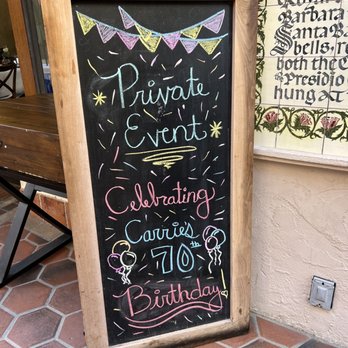 Private
Event
Celebrating
Carrie's
70th
Birthday!
Barbara
Santa Ba
bells, r
both the C
Presidio
hung